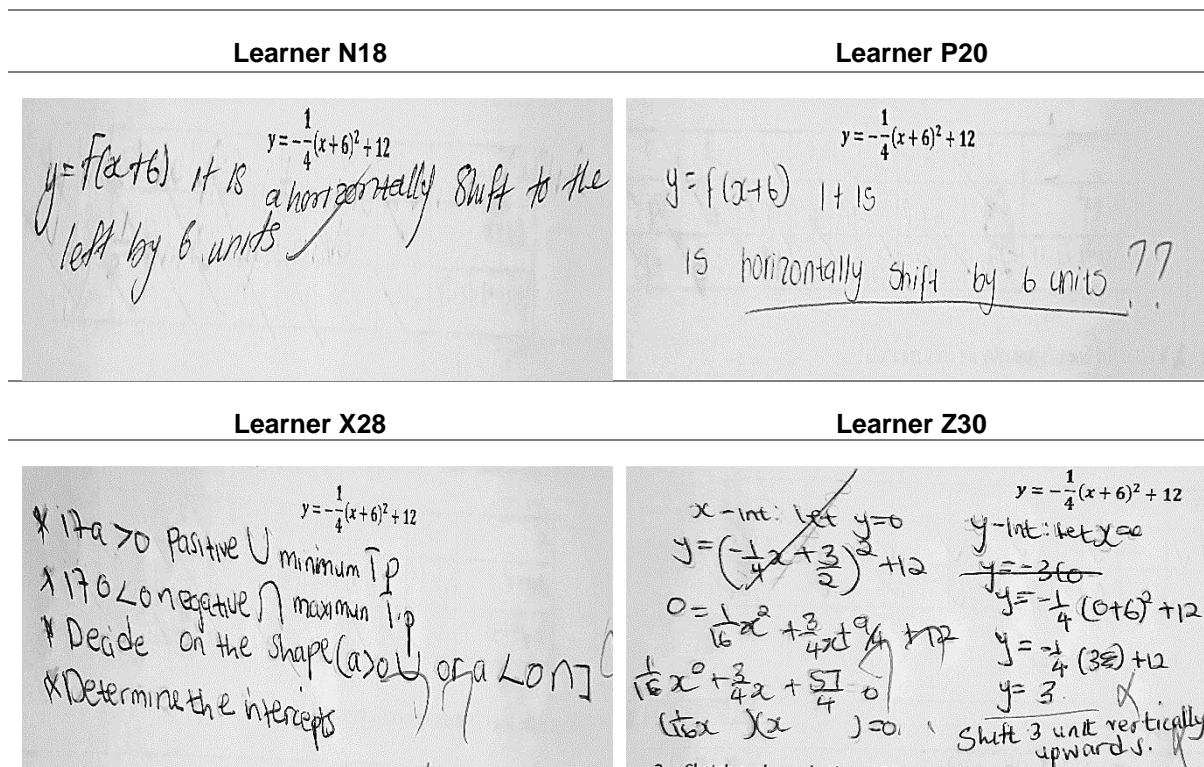 Learner N18
y = -1/4(x+6)² + 12
y = f(x+6) It is a horizontally shift to the
left by 6 units
Learner P20
y = -1/4(x+6)² + 12
y = f(x+6) It is
is horizontally shift by 6 units ??
Learner X28
y = -1/4(x+6)² + 12
* If a >0 Positive ∪ minimum T.p
* If a <0 negative ∩ maximun T.p
* Decide on the shape (a>0 ∪ or a <0 ∩]
* Determine the intercepts
Learner Z30
x-int: let y=0
y = (-1/4x + 3/2)² + 12
0 = 1/16x² + 3/4x + 9/4 + 12
1/16x⁰ + 3/4x + 57/4 = 0
(1/16x )(x ) = 0.
y = -1/4(x + 6)² + 12
y-int: let x=0
y = -360
y = -1/4(0+6)² + 12
y = -1/4(36) + 12
y = 3
Shift 3 unit vertically
upwards.